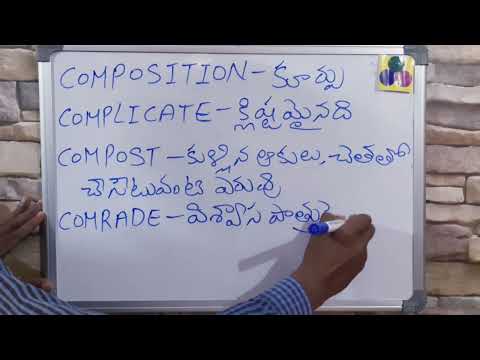 COMPOSITION - కూర్పు
COMPLICATE - క్లిష్టమైనది
COMPOST - కుళ్లిన ఆకులు, చెత్తతో
చేసేటువంటి ఎరువు
COMRADE - విశ్వాస పాత్రు